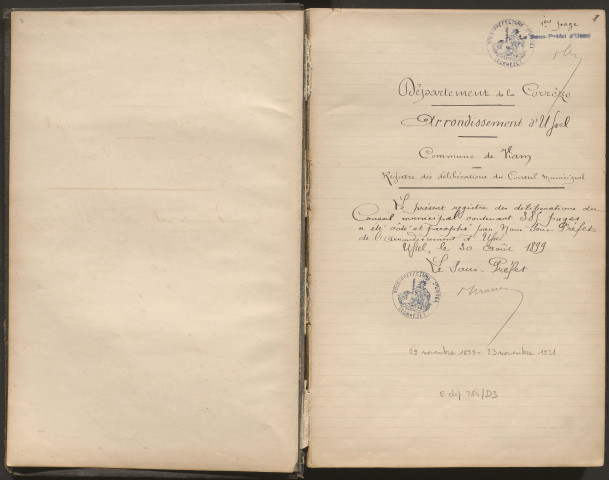 1ère page
Le Sous-Préfet d'Ussel
SOUS-PRÉFECTURE D'USSEL
(CORRÈZE)
Département de la Corrèze
Arrondissement d'Ussel
Commune de Viam
Registre des délibérations du Conseil Municipal
Le présent registre des délibérations du
Conseil municipal contenant 385 pages
a été côté et paraphé par Nous Sous-Préfet
de l'arrondissement d'Ussel
Ussel, le 20 Août 1899
Le Sous-Préfet
SOUS-PRÉFECTURE D'USSEL
(CORRÈZE)
29 novembre 1899 - 23 novembre 1921
E dép 284/D3